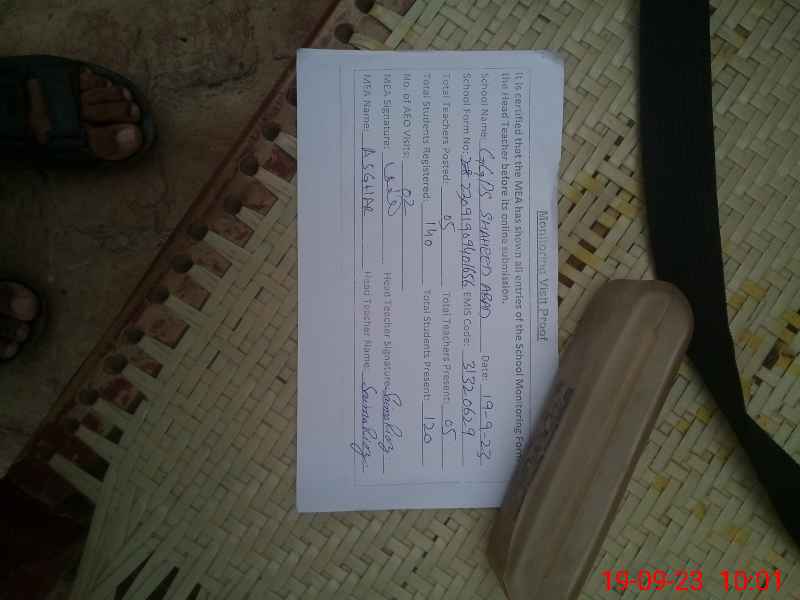 Monitoring Visit Proof
It is certified that the MEA has shown all entries of the School Monitoring Form
the Head Teacher before its online submission.
School Name: GGPS SHAHEED ABAD Date: 19-9-23
School Form No: EMIS Code: 31320629
Total Teachers Posted: 05 Total Teachers Present: 05
Total Students Registered: 140 Total Students Present: 120
No. of AEO Visits: 02
MEA Signature: Head Teacher Signature:
MEA Name: ASGHAR Head Teacher Name:
19-09-23 10:01